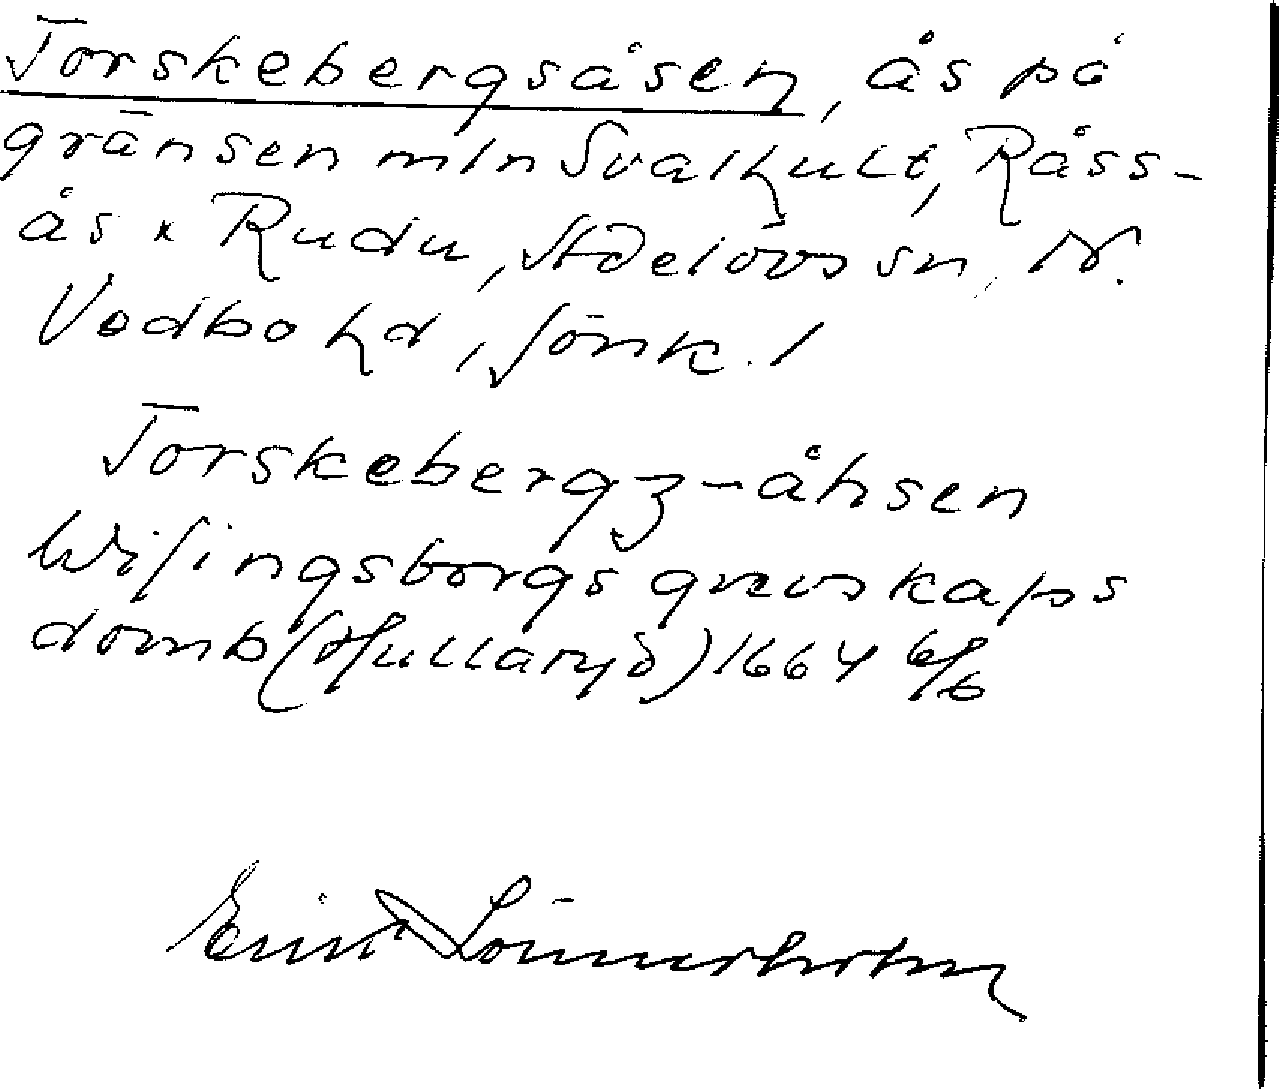 Torskebergsåsen, ås på
gränsen mln Svalhult, Råss-
ås x Rudu, Adelövs sn, N.
Vedbo hd, Jönk. l
Torskebergz-åhsen
Wisingsborgs grevskaps
domb (Hullaryd) 1664 6/6
Erik Lönnerholm